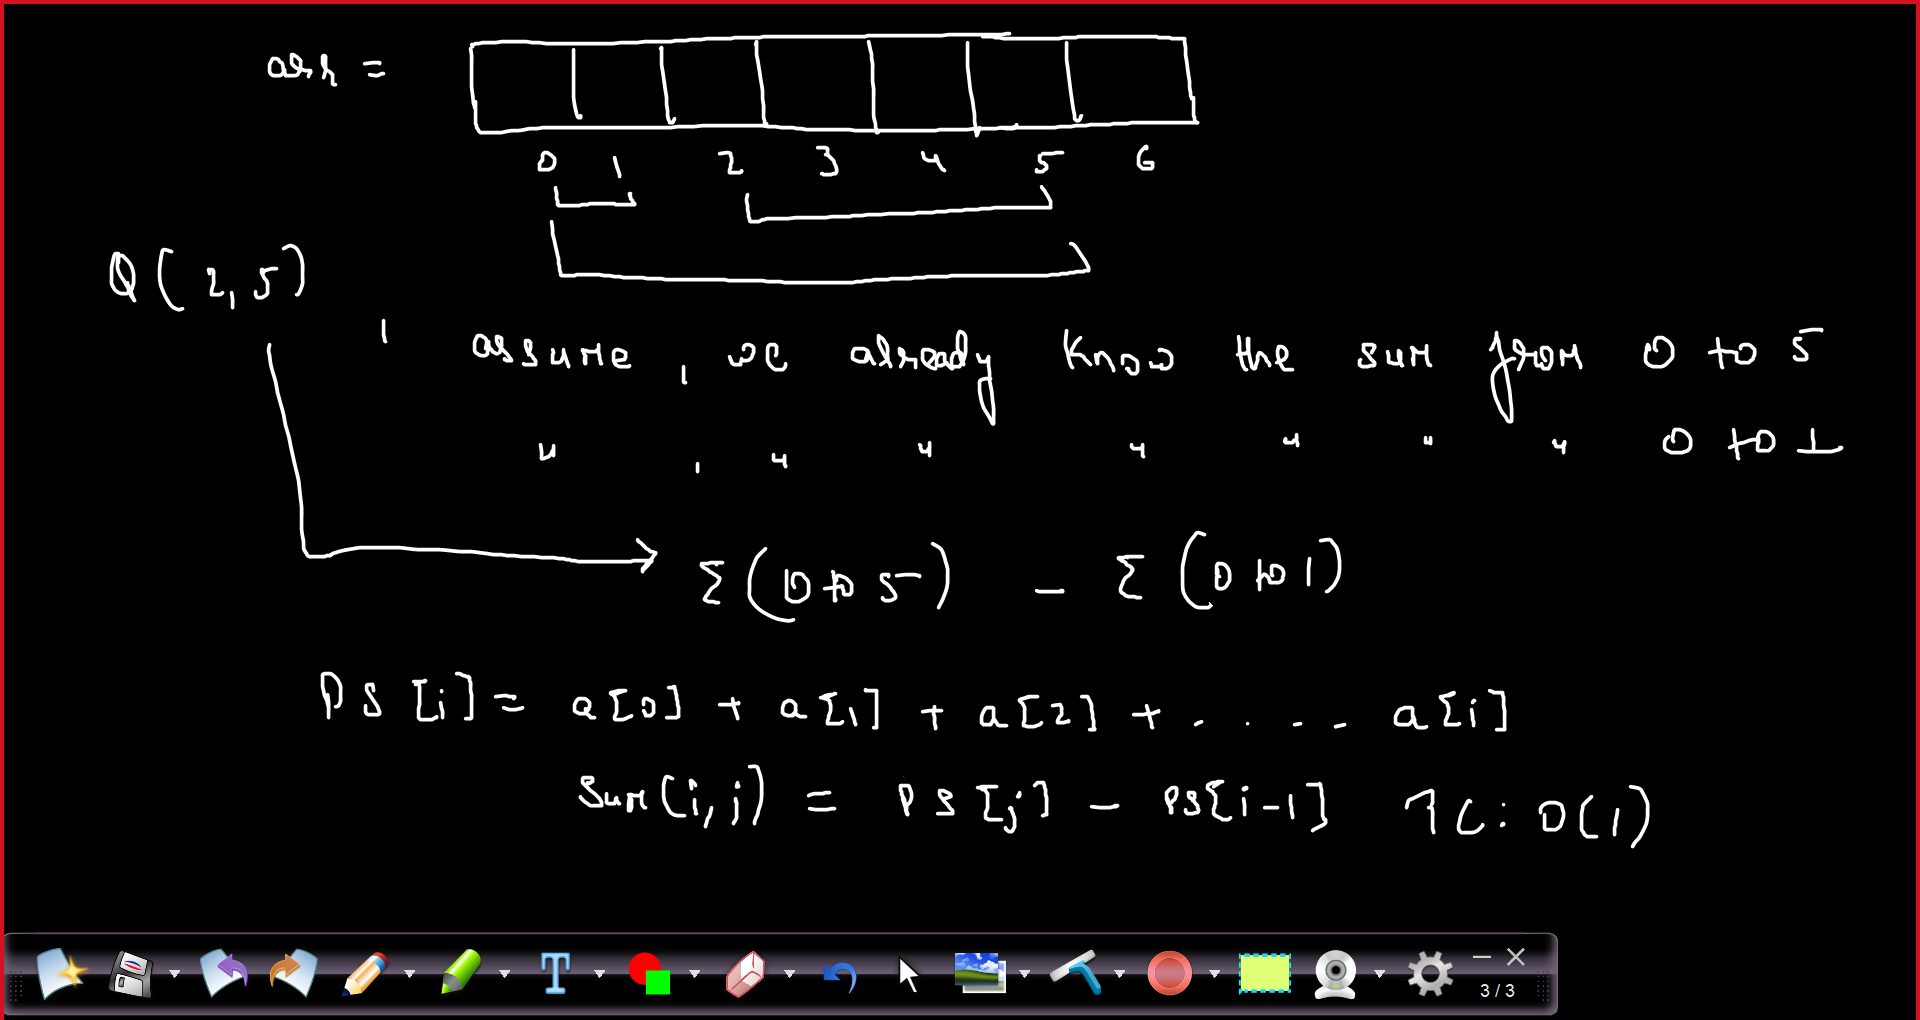 arr =
0 1 2 3 4 5 6
Q(2,5)
assume, we already know the sum from 0 to 5
" , " " " " " " 0 to 1
Σ(0 to 5) - Σ(0 to 1)
PS[i] = a[0] + a[1] + a[2] + . . . . a[i]
Sum(i,j) = PS[j] - PS[i-1] TC: O(1)
3 / 3